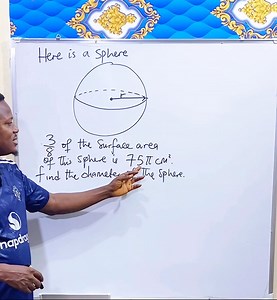 Here is a Sphere
r
3/8 of the Surface area
of this sphere is 75π cm².
find the diameter of the Sphere.
napdra